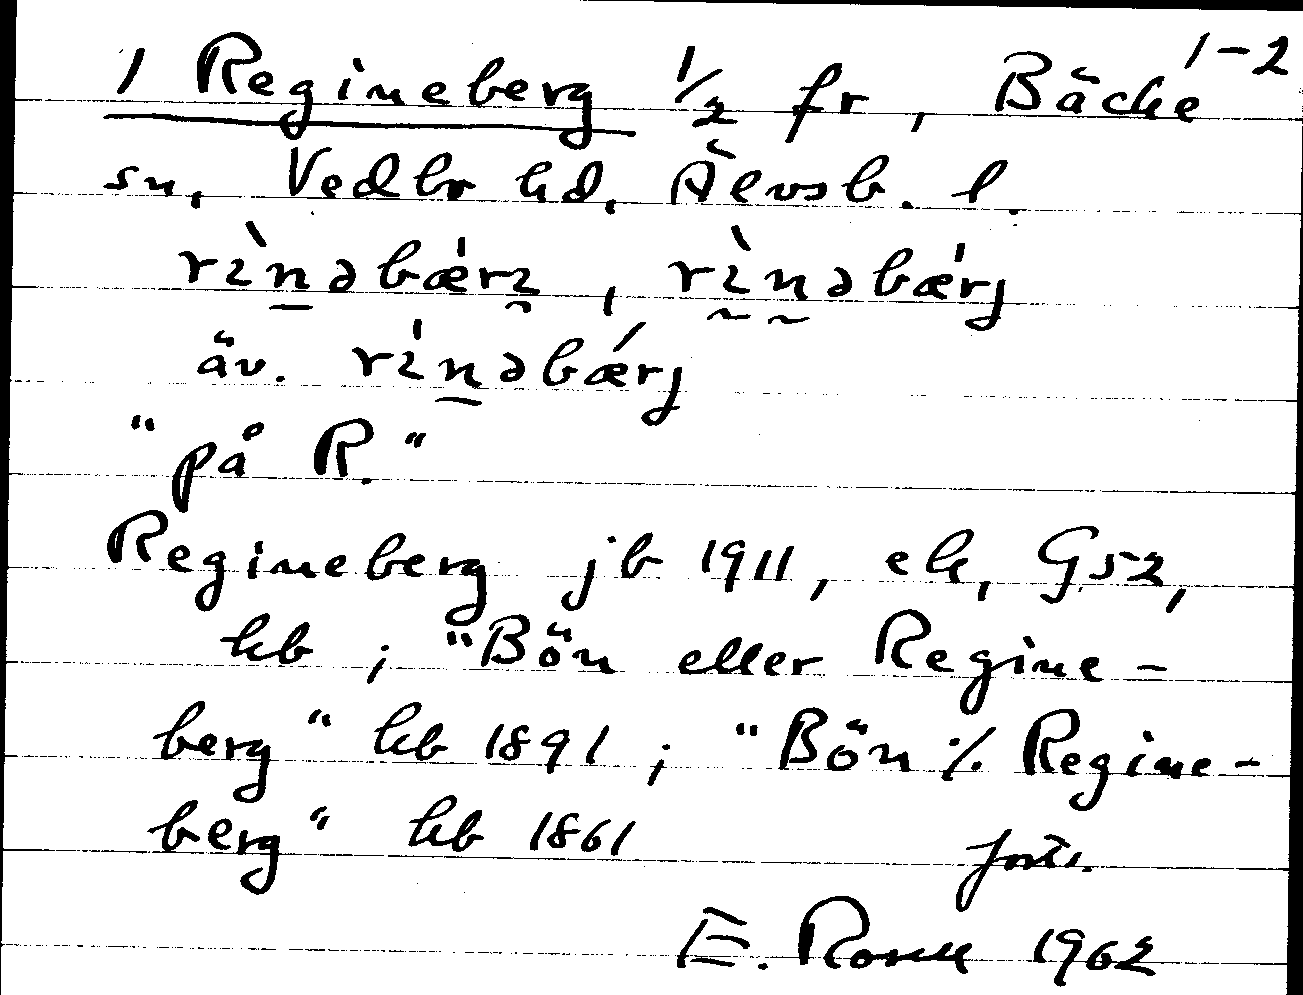 1 Regineberg 1/2 fr, Bäcke 1-2
sn, Vedbo hd, Älvsb. l.
rɩ̀n̲əbǽrɩ̰, rɩ̰̀n̰əbǽrj
äv. rɩ́n̲əbǽrj
"på R."
Regineberg jb 1911, ek, G52,
kb ; "Bön eller Regine-
berg" kb 1891 ; "Bön ⁒ Regine-
berg" kb 1861 forts.
E. Rosell 1962